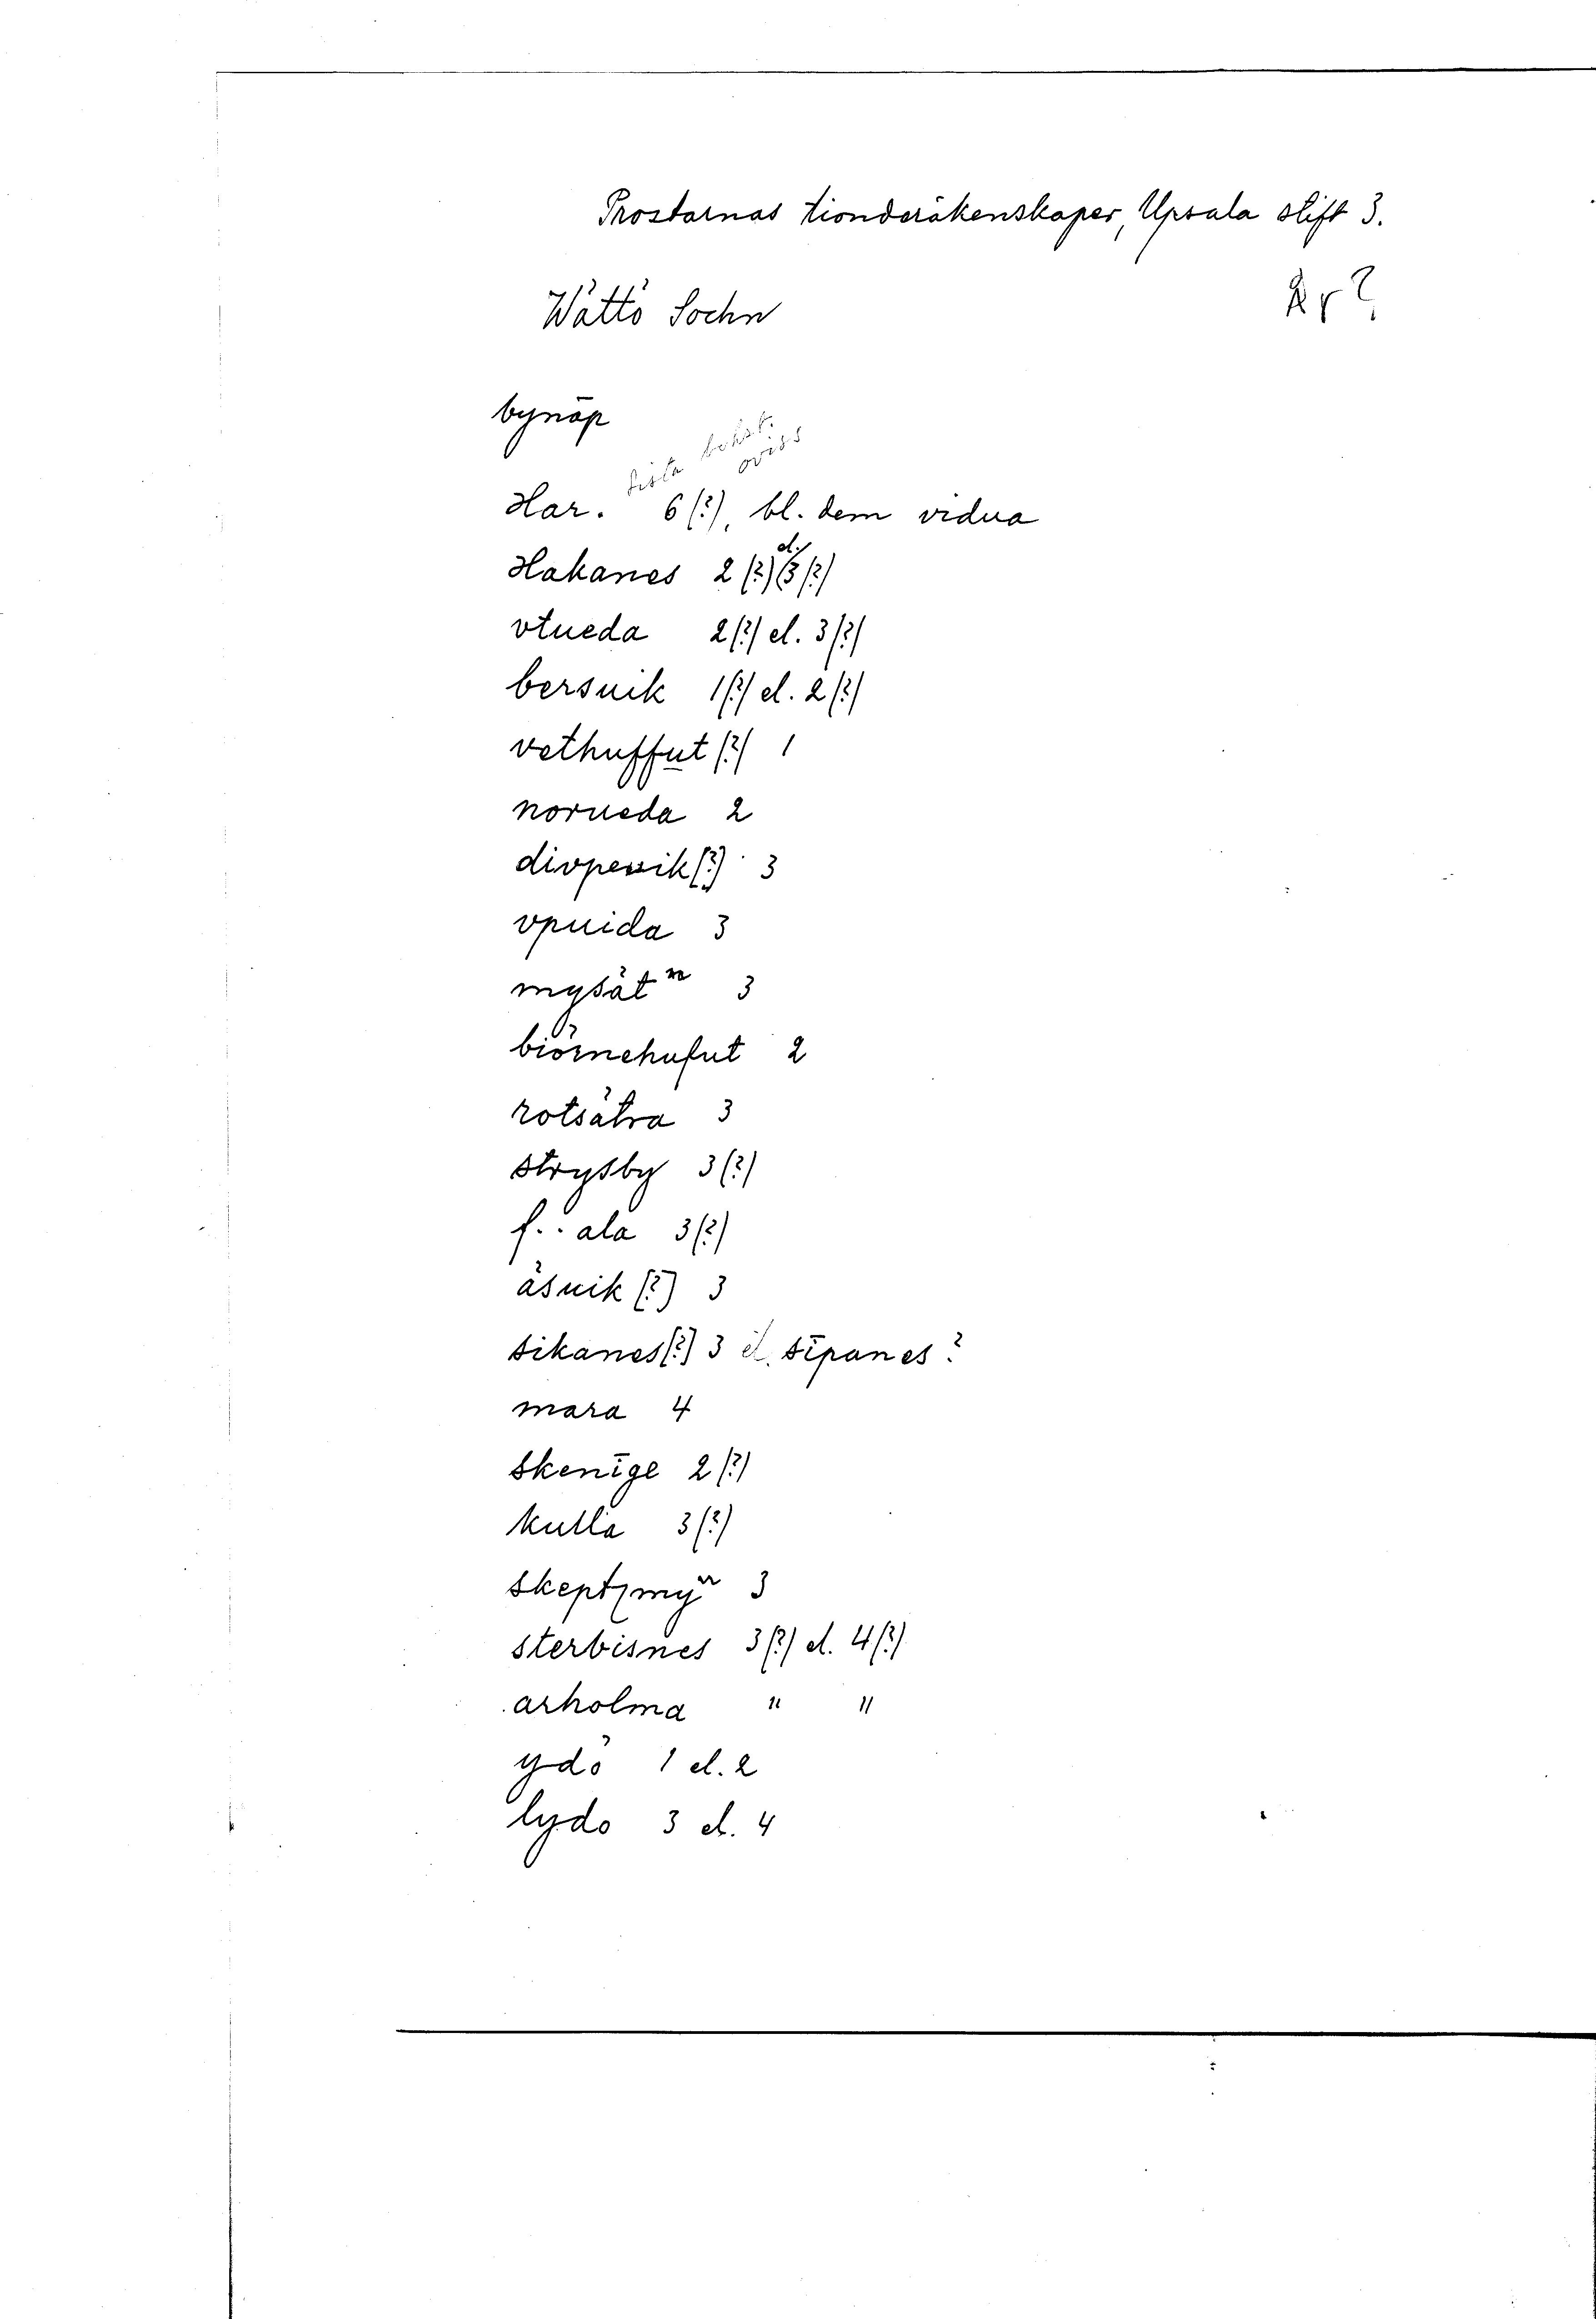 Prostarnas tionderäkenskaper, Upsala stift 3.
Wättö Sochn
År?
bynäp
sista bokst.
oviss
Har. 6(?), bl. dem vidua
Hakanes 2(?) el. 3(?)
vtueda 2(?) el. 3(?)
bersuik 1(?) el. 2(?)
vethuffut(?) 1
norueda 2
divpevik[?] 3
vpuida 3
mysät ra 3
biörnehufut 2
rotsätra 3
strysby 3(?)
f..ala 3(?)
åsuik[?] 3
sikanes[?] 3 el. sīpanes?
mara 4
skenīge 2(?)
kulla 3(?)
skeptzmyr 3
sterbisnes 3(?) el. 4(?)
arholma " "
ydö 1 el. 2
lydo 3 el. 4